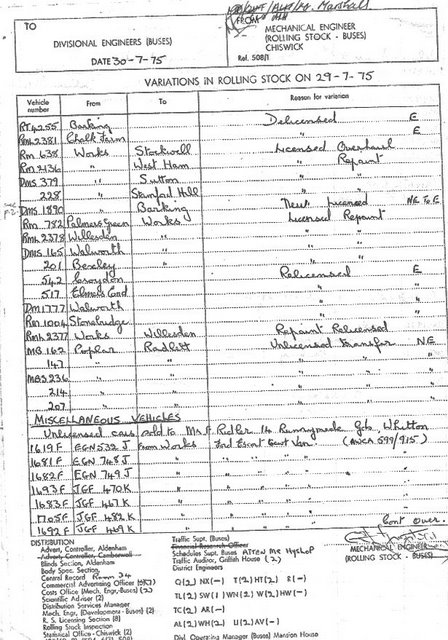 TO
DIVISIONAL ENGINEERS (BUSES)
DATE 30-7-75
FROM
MECHANICAL ENGINEER
(ROLLING STOCK - BUSES)
CHISWICK
Ref. 508/1
VARIATIONS IN ROLLING STOCK ON 29-7-75
Vehicle number From To Reason for variation
RT 4255 Barking Delicensed E
RML 2381 Chalk Farm " E
RM 638 Works Stockwell Licensed Overhaul
RM 2136 " West Ham " Repaint
DMS 379 " Sutton " "
228 " Stamford Hill " "
DMS 1890 Barking New Licensed NE TO E
RM 782 Palmers Green Works Licensed Repaint
RML 2378 Willesden " " "
DMS 165 Walworth " " "
201 Bexley Relicensed E
542 Croydon " "
517 Elmers End " "
DM 1777 Walworth " "
RM 1004 Stonebridge " "
RML 2377 Works Willesden Repaint Relicensed
MB 162 Poplar Radlett Unlicensed Transfer NE
147 " " " "
MBS 236 " " " "
214 " " " "
207 " " " "
MISCELLANEOUS VEHICLES
Unlicensed cars sold to Mr F. Ridler 14 Runnymede Gds, Whitton
1619 F EGN 532 J From Works Ford Escort Govt Van (AWCA 599/915)
1681 F EGN 748 J " " " "
1682 F EGN 749 J " " " "
1693 F JGF 470 K " " " "
1683 F JGF 467 K " " " "
1705 F JGF 482 K " " " "
1692 F JGF 469 K " " " "
Cont Over.
DISTRIBUTION
Advert, Controller, Aldenham
Advert, Controller, Camberwell
Blinds Section, Aldenham
Body Spec. Section
Central Record Room 34
Commercial Advertising Officer
Costs Office (Mech. Engr. Buses) (2)
Scientific Adviser (2)
Distribution Services Manager
Mech. Eng. (Development - Buses) (2)
R. S. Licensing Section (8)
Rolling Stock Inspection
Statistical Office - Chiswick (2)
Traffic Supt. (Buses)
Financial Research Officer
Schedules Supt. Buses ATTEN MR HYSLOP
Traffic Auditor, Griffith House (2)
District Engineers
Q(2) NX(-) T(2) HT(2) R(-)
TL(2) SW(1) WN(2) W(2) HW(-)
TC(2) AR(-)
AL(2) WH(2) U(2) AV(-)
Divl. Operating Manager (Buses) Mansion House
MECHANICAL ENGINEER
(ROLLING STOCK - BUSES)